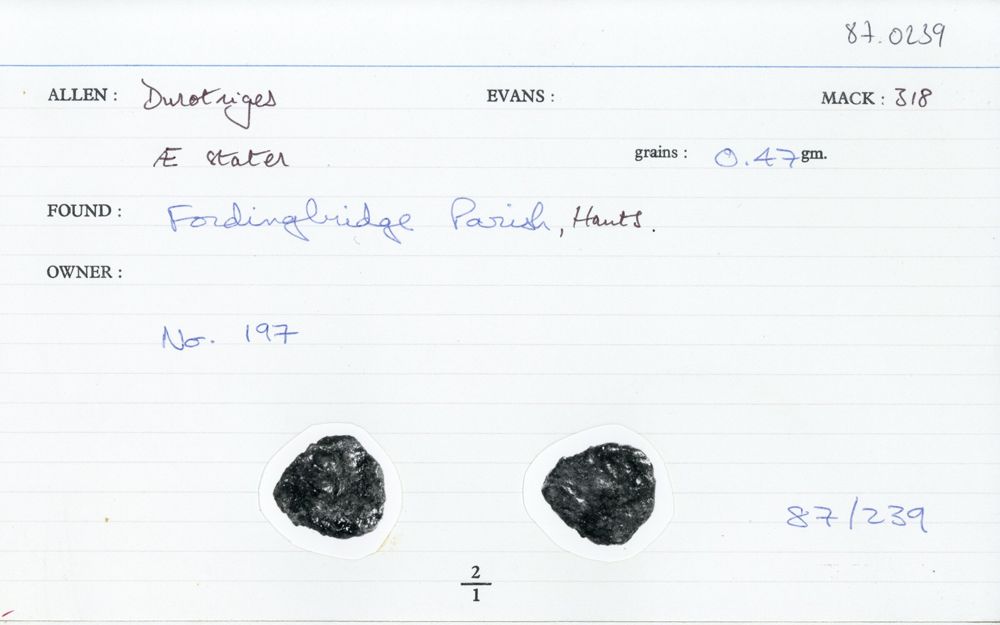 87.0239
ALLEN : Durotriges EVANS : MACK : 318
Æ stater grains : 0.47 gm.
FOUND : Fordingbridge Parish, Hants.
OWNER :
No. 197
87/239
2
1